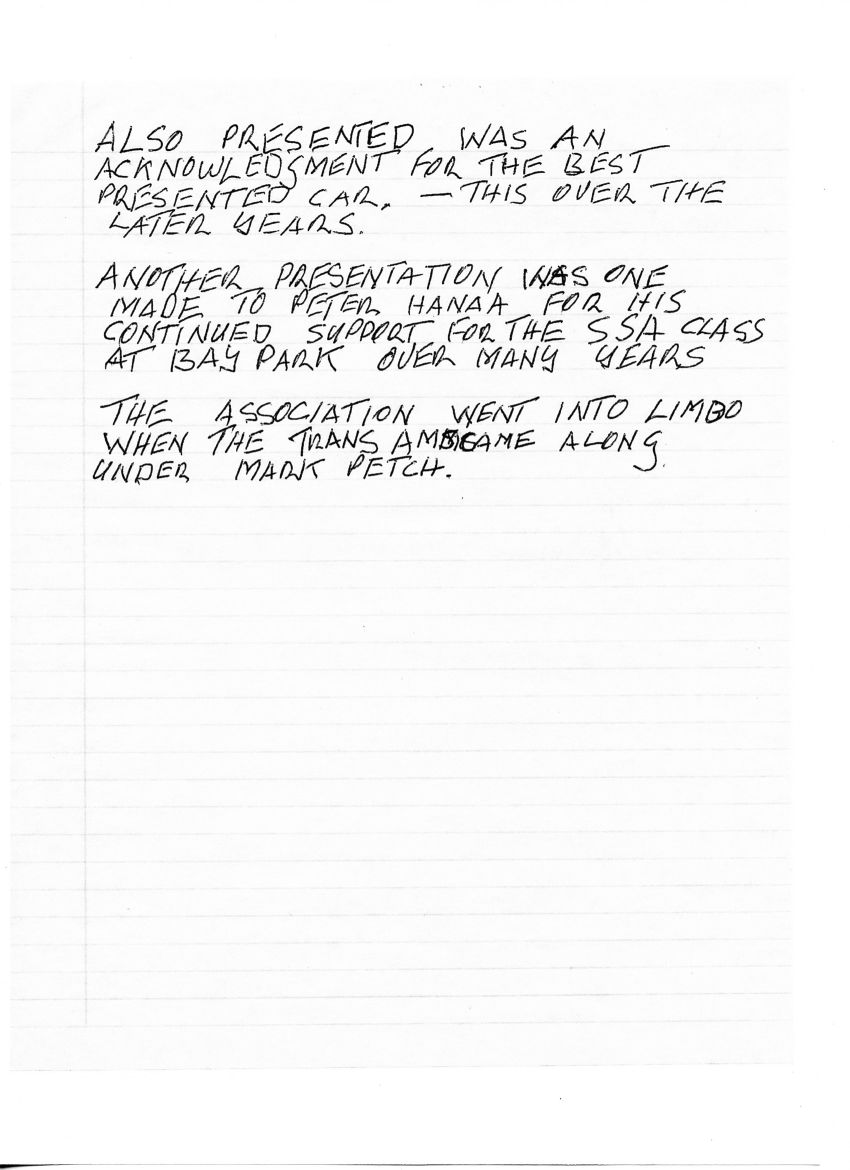 ALSO PRESENTED WAS AN
ACKNOWLEDGMENT FOR THE BEST
PRESENTED CAR. — THIS OVER THE
LATER YEARS.
ANOTHER PRESENTATION WAS ONE
MADE TO PETER HANAA FOR HIS
CONTINUED SUPPORT FOR THE SSA CLASS
AT BAY PARK OVER MANY YEARS
THE ASSOCIATION WENT INTO LIMBO
WHEN THE TRANS AMS CAME ALONG.
UNDER MARK PETCH.